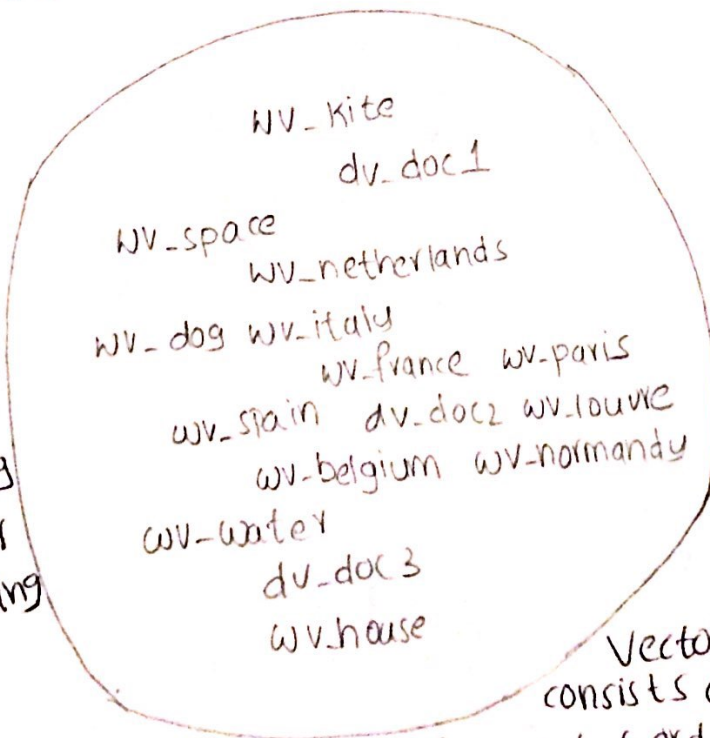 wv_kite
dv_doc1
wv_space
wv_netherlands
wv_dog wv_italy
wv_france wv_paris
wv_spain dv_doc2 wv_louvre
wv_belgium wv_normandy
wv_water
dv_doc3
wv_house
consists